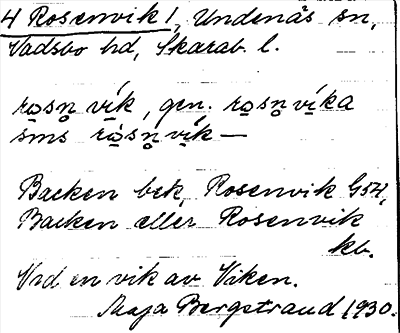 4 Rosenvik 1, Undenäs sn,
Vadsbo hd, Skarab. l.
rosn̥ vík, gen. rosn̥ víka
sms ròsn̥ vík—
Backen bek, Rosenvik G54,
Backen eller Rosenvik
kb.
Vid en vik av Viken.
Maja Bergstrand 1930.